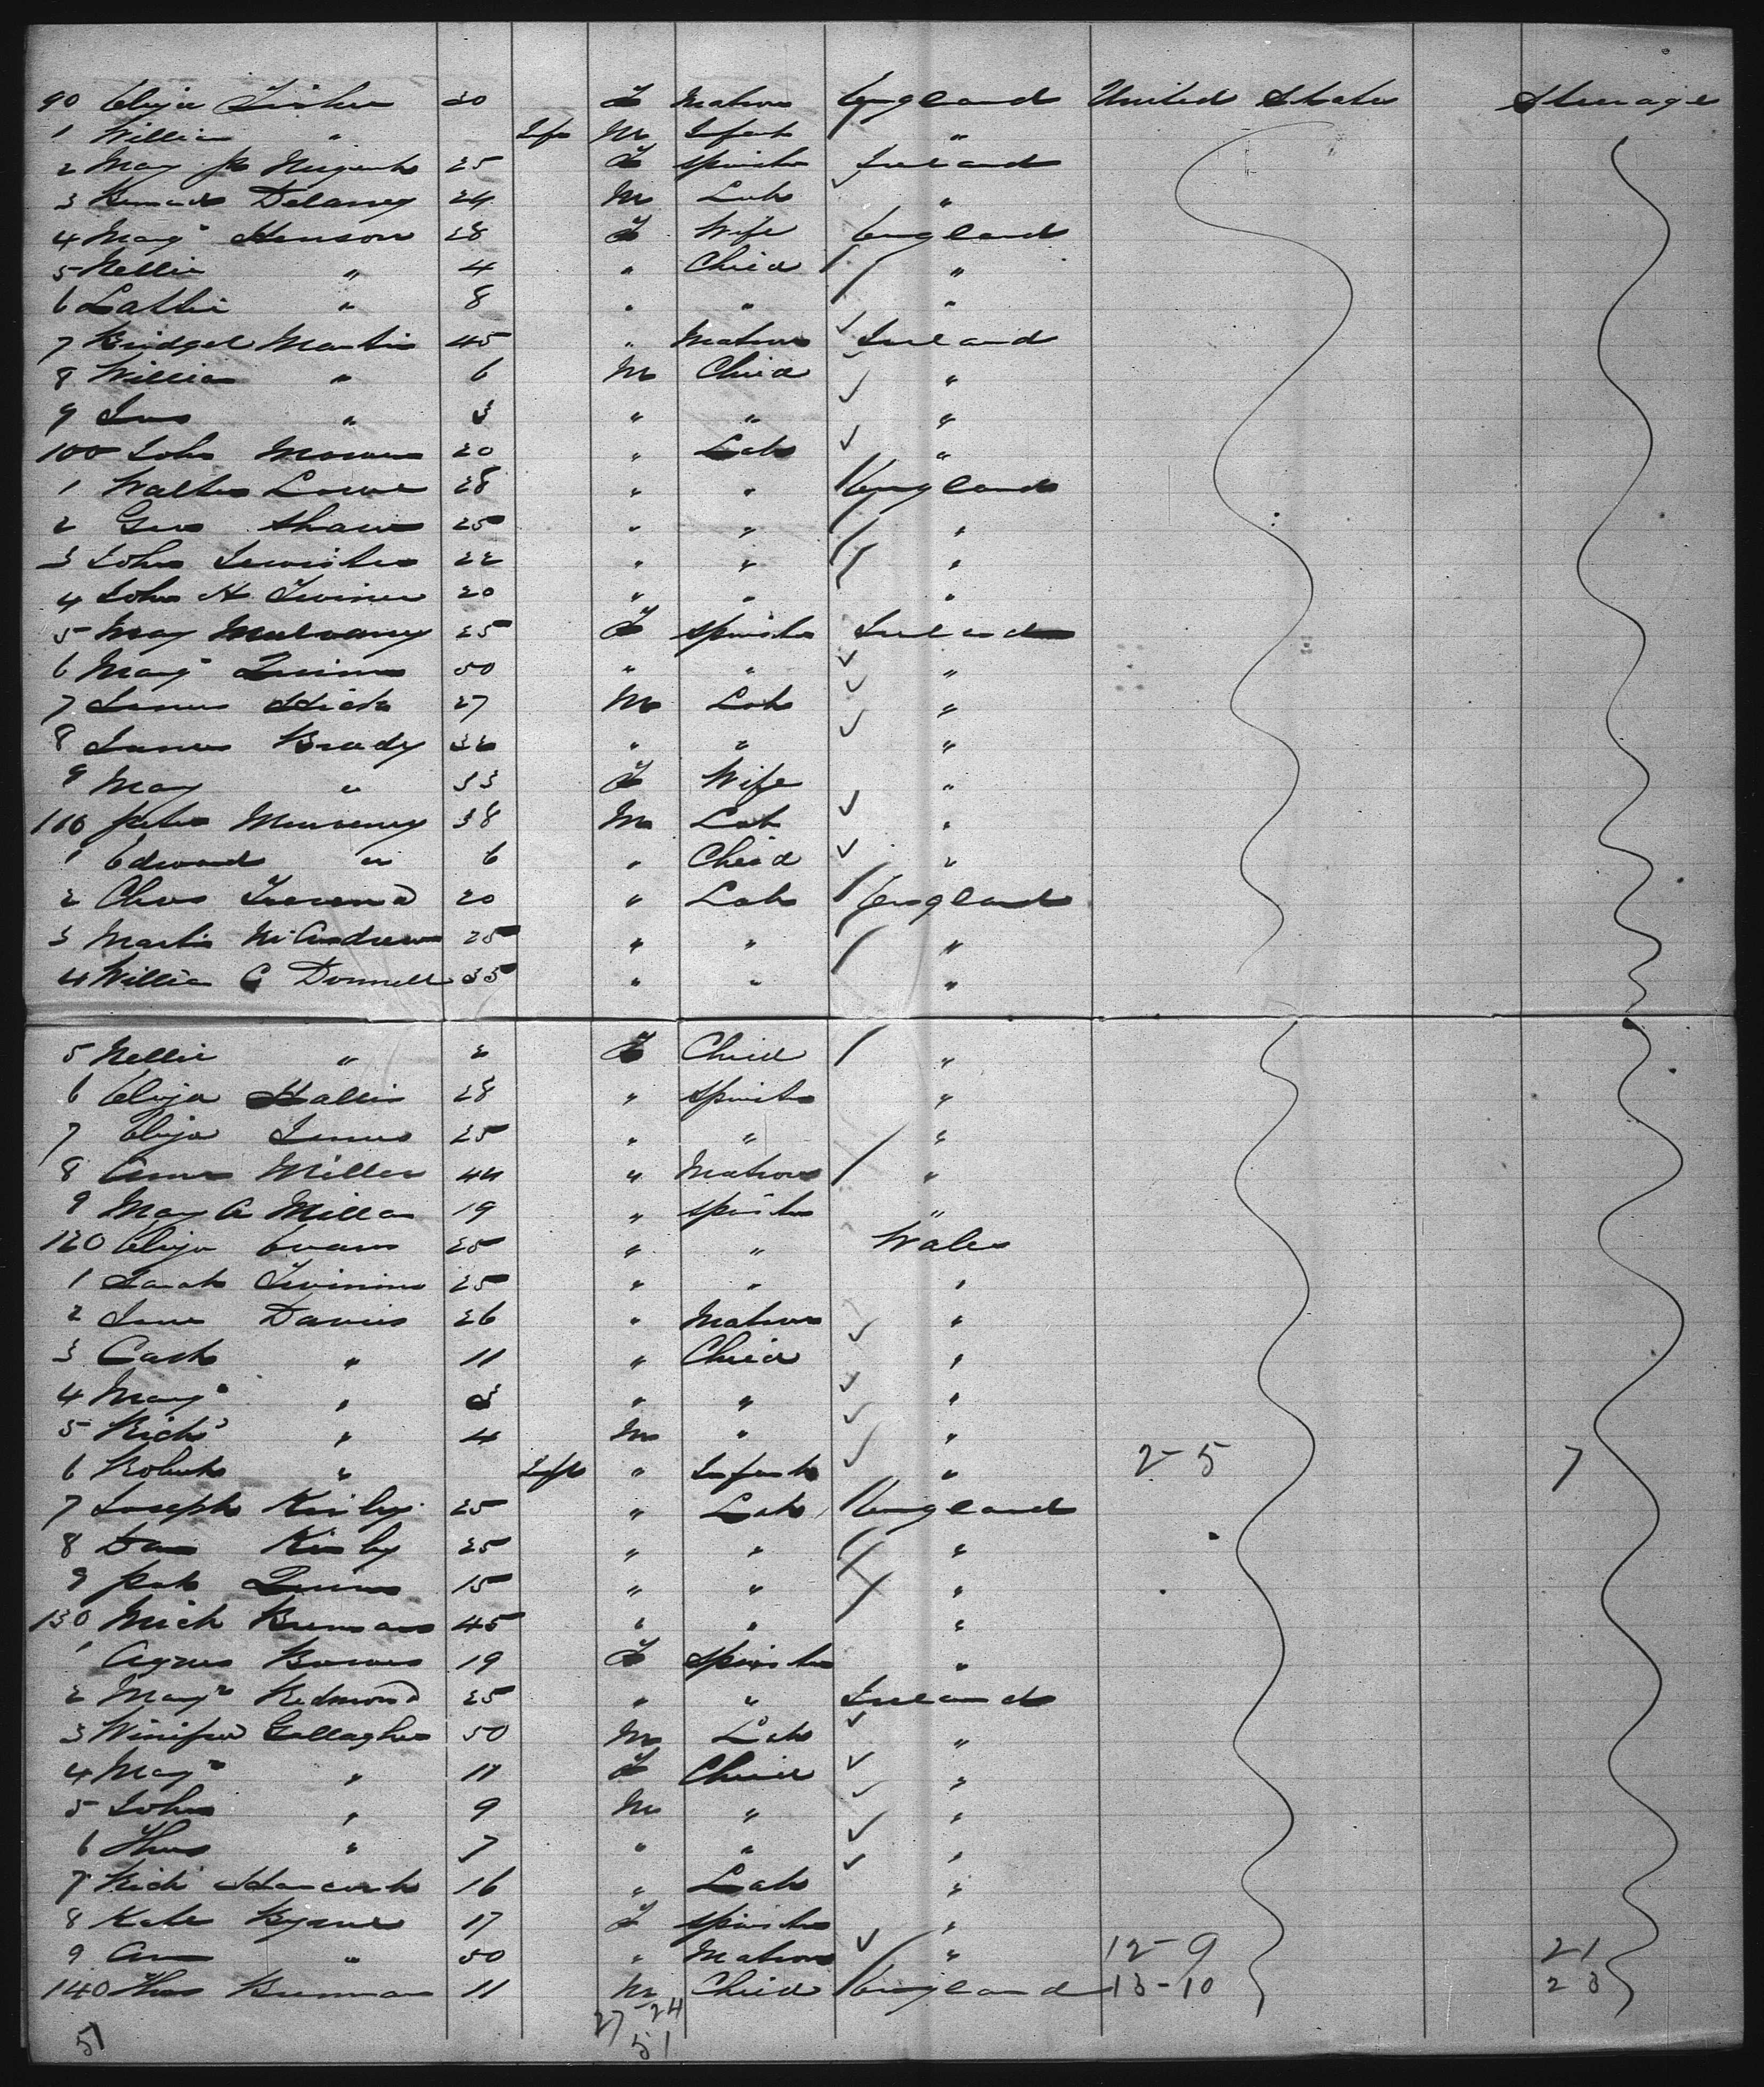 90 Eliza Fisher 30 F Matron England United States Steerage
1 William " Inft M Infant "
2 Mary Nugent 25 F Spinster Ireland
3 Bernard Delaney 24 M Lab "
4 Margt Henson 28 F Wife England
5 Nellie " 4 " Child "
6 " 8 " " "
7 Bridget Martin 45 " Matron Ireland
8 William " 6 M Child "
9 Jas " 3 " " "
100 John 20 " Lab "
1 Walter Lowe 28 " " England
2 Geo Shaw 25 " " "
3 John 22 " " "
4 John H 20 " " "
5 Mary Mulvaney 25 F Spinster Ireland
6 Margt Quinn 50 " " "
7 James 27 M Lab "
8 James Brady 36 " " "
9 Mary " 33 F Wife "
110 Peter 38 M Lab "
1 Edward " 6 " Child "
2 Chas 20 " Lab England
3 Martin McAndrew 25 " " "
4 William C Donnell 35 " " "
5 Nellie " 2 F Child "
6 Eliza 28 " Spinster "
7 Eliza 25 " " "
8 Anne Miller 44 " Matron "
9 Mary A Millar 19 " Spinster "
120 Eliza Evans 25 " " Wales
1 Sarah 25 " " "
2 Jane Davies 26 " Matron "
3 Cath " 11 " Child "
4 Margt " 3 " " "
5 Richd " 4 M " "
6 Robert " Inft " Infant " 2-5 7
7 Joseph Kirby 25 " Lab England
8 Dan Kirby 25 " " "
9 Pat Quinn 15 " " "
130 Mich Brennan 45 " " "
1 Agnes 19 F Spinster "
2 Margt Redmond 25 " " Ireland
3 Winifred Gallagher 50 M Lab "
4 Margt " 11 F Child "
5 John " 9 M " "
6 Thos " 7 " " "
7 Rich 16 " Lab "
8 Kate Byrne 17 F Spinster "
9 Ann " 50 " Matron " 12-9 21
140 Thos Brennan 11 M Child England 13-10 23
27-24
51 51